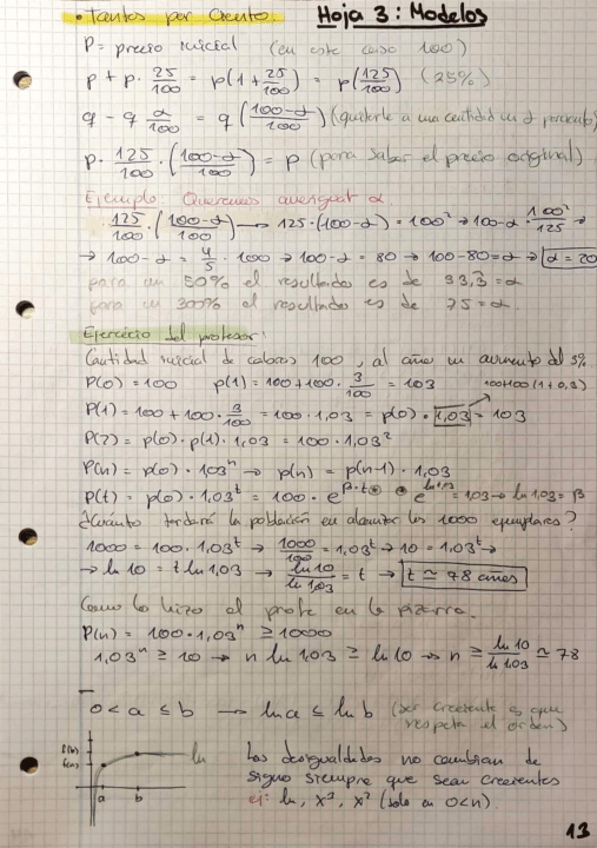 • Tantos por Ciento. Hoja 3: Modelos
P = precio inicial (en este caso 100)
p + p · 25/100 = p(1 + 25/100) = p(125/100) (25%)
q - q α/100 = q (100-α/100) (quitarle a una cantidad un α porciento)
p · 125/100 · (100-α/100) = p (para saber el precio original)
Ejemplo: Queremos averiguar α
125/100 · (100-α/100) → 125·(100-α) = 100² → 100-α · 100²/125 →
→ 100-α = 4/5 · 100 → 100-α = 80 → 100-80=α → α = 20
para un 50% el resultado es de 33,3̂ = α
para un 300% el resultado es de 75 = α
Ejercicio del profesor:
Cantidad inicial de cabras 100, al año un aumento del 3%
P(0) = 100 p(1) = 100 + 100 · 3/100 = 103 100+100 (1+0,3)
P(1) = 100 + 100 · 3/100 = 100 · 1,03 = p(0) · 1,03 = 103
P(2) = p(0) · p(1) · 1,03 = 100 · 1,03²
P(n) = p(0) · 1,03ⁿ → p(n) = p(n-1) · 1,03
P(t) = p(0) · 1,03ᵗ = 100 · e^β·t e^ln1,03 = 1,03 → ln 1,03 = β
¿Cuánto tardará la población en alcanzar los 1000 ejemplares?
1000 = 100 · 1,03ᵗ → 1000/100 = 1,03ᵗ → 10 = 1,03ᵗ →
→ ln 10 = t ln 1,03 → ln 10/ln 1,03 = t → t ≃ 78 años
Como lo hizo el profe en la pizarra.
P(n) = 100 · 1,03ⁿ ≥ 1000
1,03ⁿ ≥ 10 → n ln 1,03 ≥ ln 10 → n ≥ ln 10/ln 1,03 ≃ 78
0 < a ≤ b → ln a ≤ ln b (ser creciente es que
respeta el orden)
ln
a b
Las desigualdades no cambian de
signo siempre que sean crecientes
ej: ln, x³, x² (solo en 0<n).
13